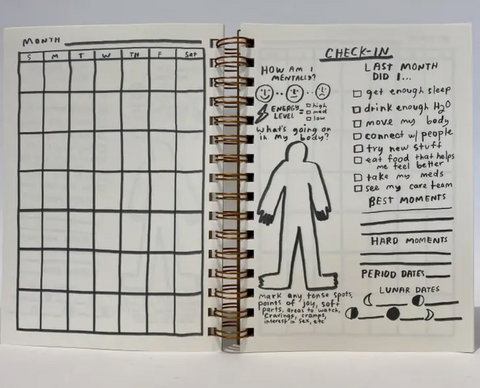 MONTH
S M T W TH F Sat
CHECK-IN
HOW AM I
MENTALLY?
ENERGY
LEVEL =
high
med
low
What's going on
in my body?
mark any tense spots,
points of joy, soft
parts, areas to watch,
cravings, cramps,
interest in sex, etc
LAST MONTH
DID I...
get enough sleep
drink enough H2O
move my body
connect w/ people
try new stuff
eat food that helps
me feel better
take my meds
see my care team
BEST MOMENTS
HARD MOMENTS
PERIOD DATES
LUNAR DATES